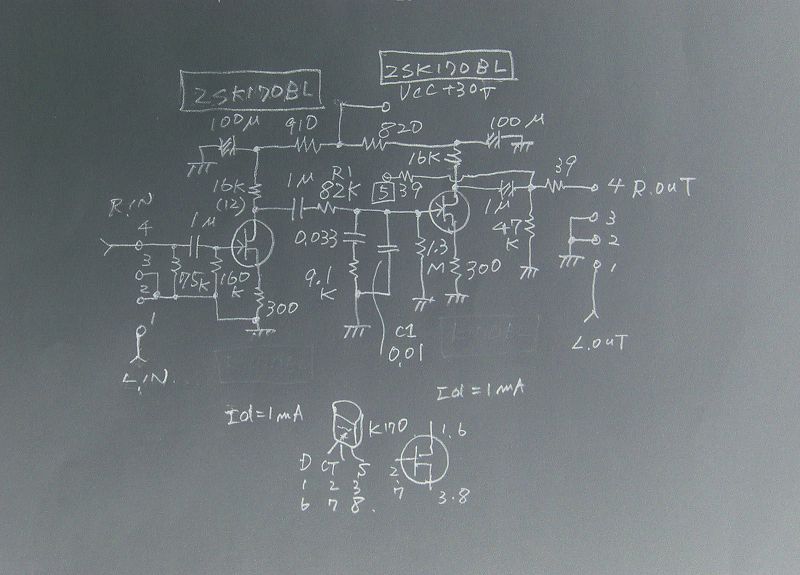 2SK170BL
2SK170BL
VCC +30V
100μ
910
820
100μ
16K
(12)
1μ
R1
82K
5
39
16K
1μ
39
4 R.OUT
R.IN
4
1μ
3
2
75K
160
K
300
0.033
9.1
K
1.3
M
300
47
K
3
2
1
1
L.IN
C1
0.01
L.OUT
Id=1mA
Id=1mA
K170
D G S
1 2 3
6 7 8
1.6
2.
7
3.8